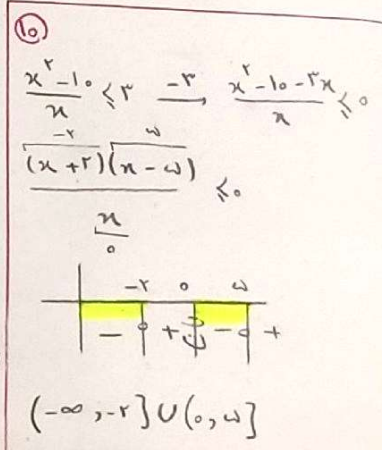 ۱۰
(x^۲ - ۱۰)/x ⩽ ۳ —(-۳)→ (x^۲ - ۱۰ - ۳x)/x ⩽ ۰
-۲ ۵
(x + ۲)(x - ۵)/x ⩽ ۰
۰
-۲ ۰ ۵
- + ن - +
(-∞, -۲] ∪ (۰, ۵]